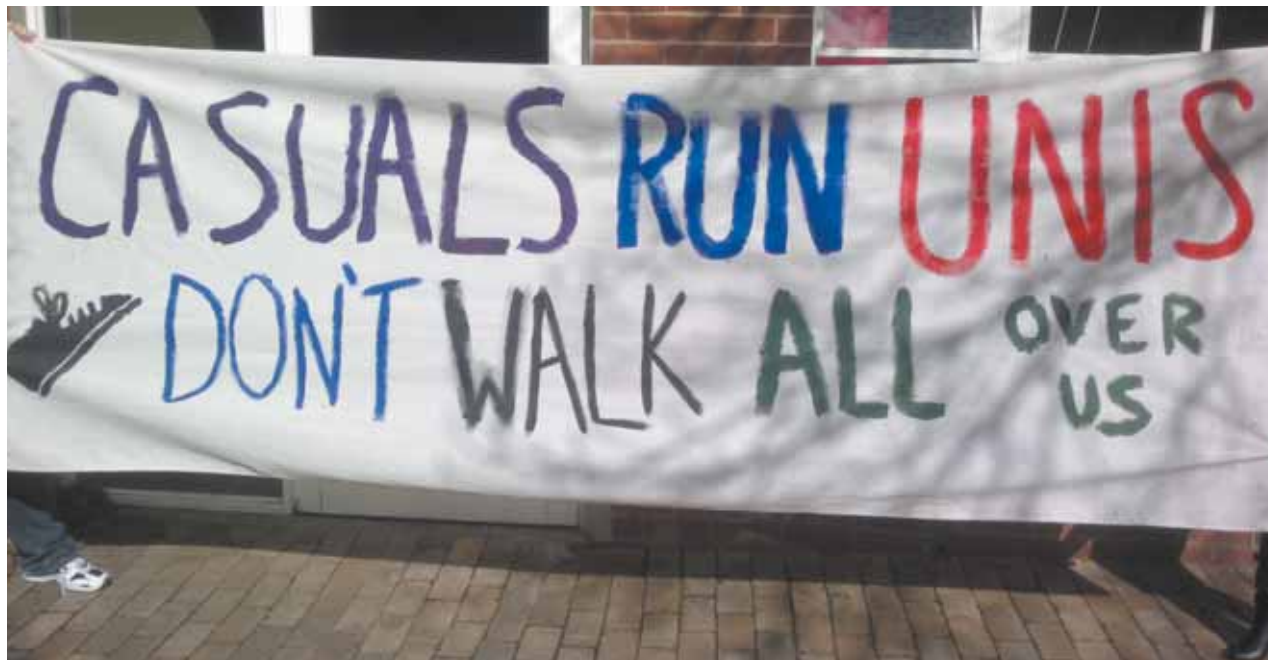 CASUALS RUN UNIS
DON'T WALK ALL OVER
US